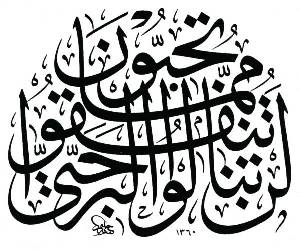 لَنْ تَنَالُوا الْبِرَّ حَتَّىٰ
تُنْفِقُوا مِمَّا
تُحِبُّونَ
١٣٦٠